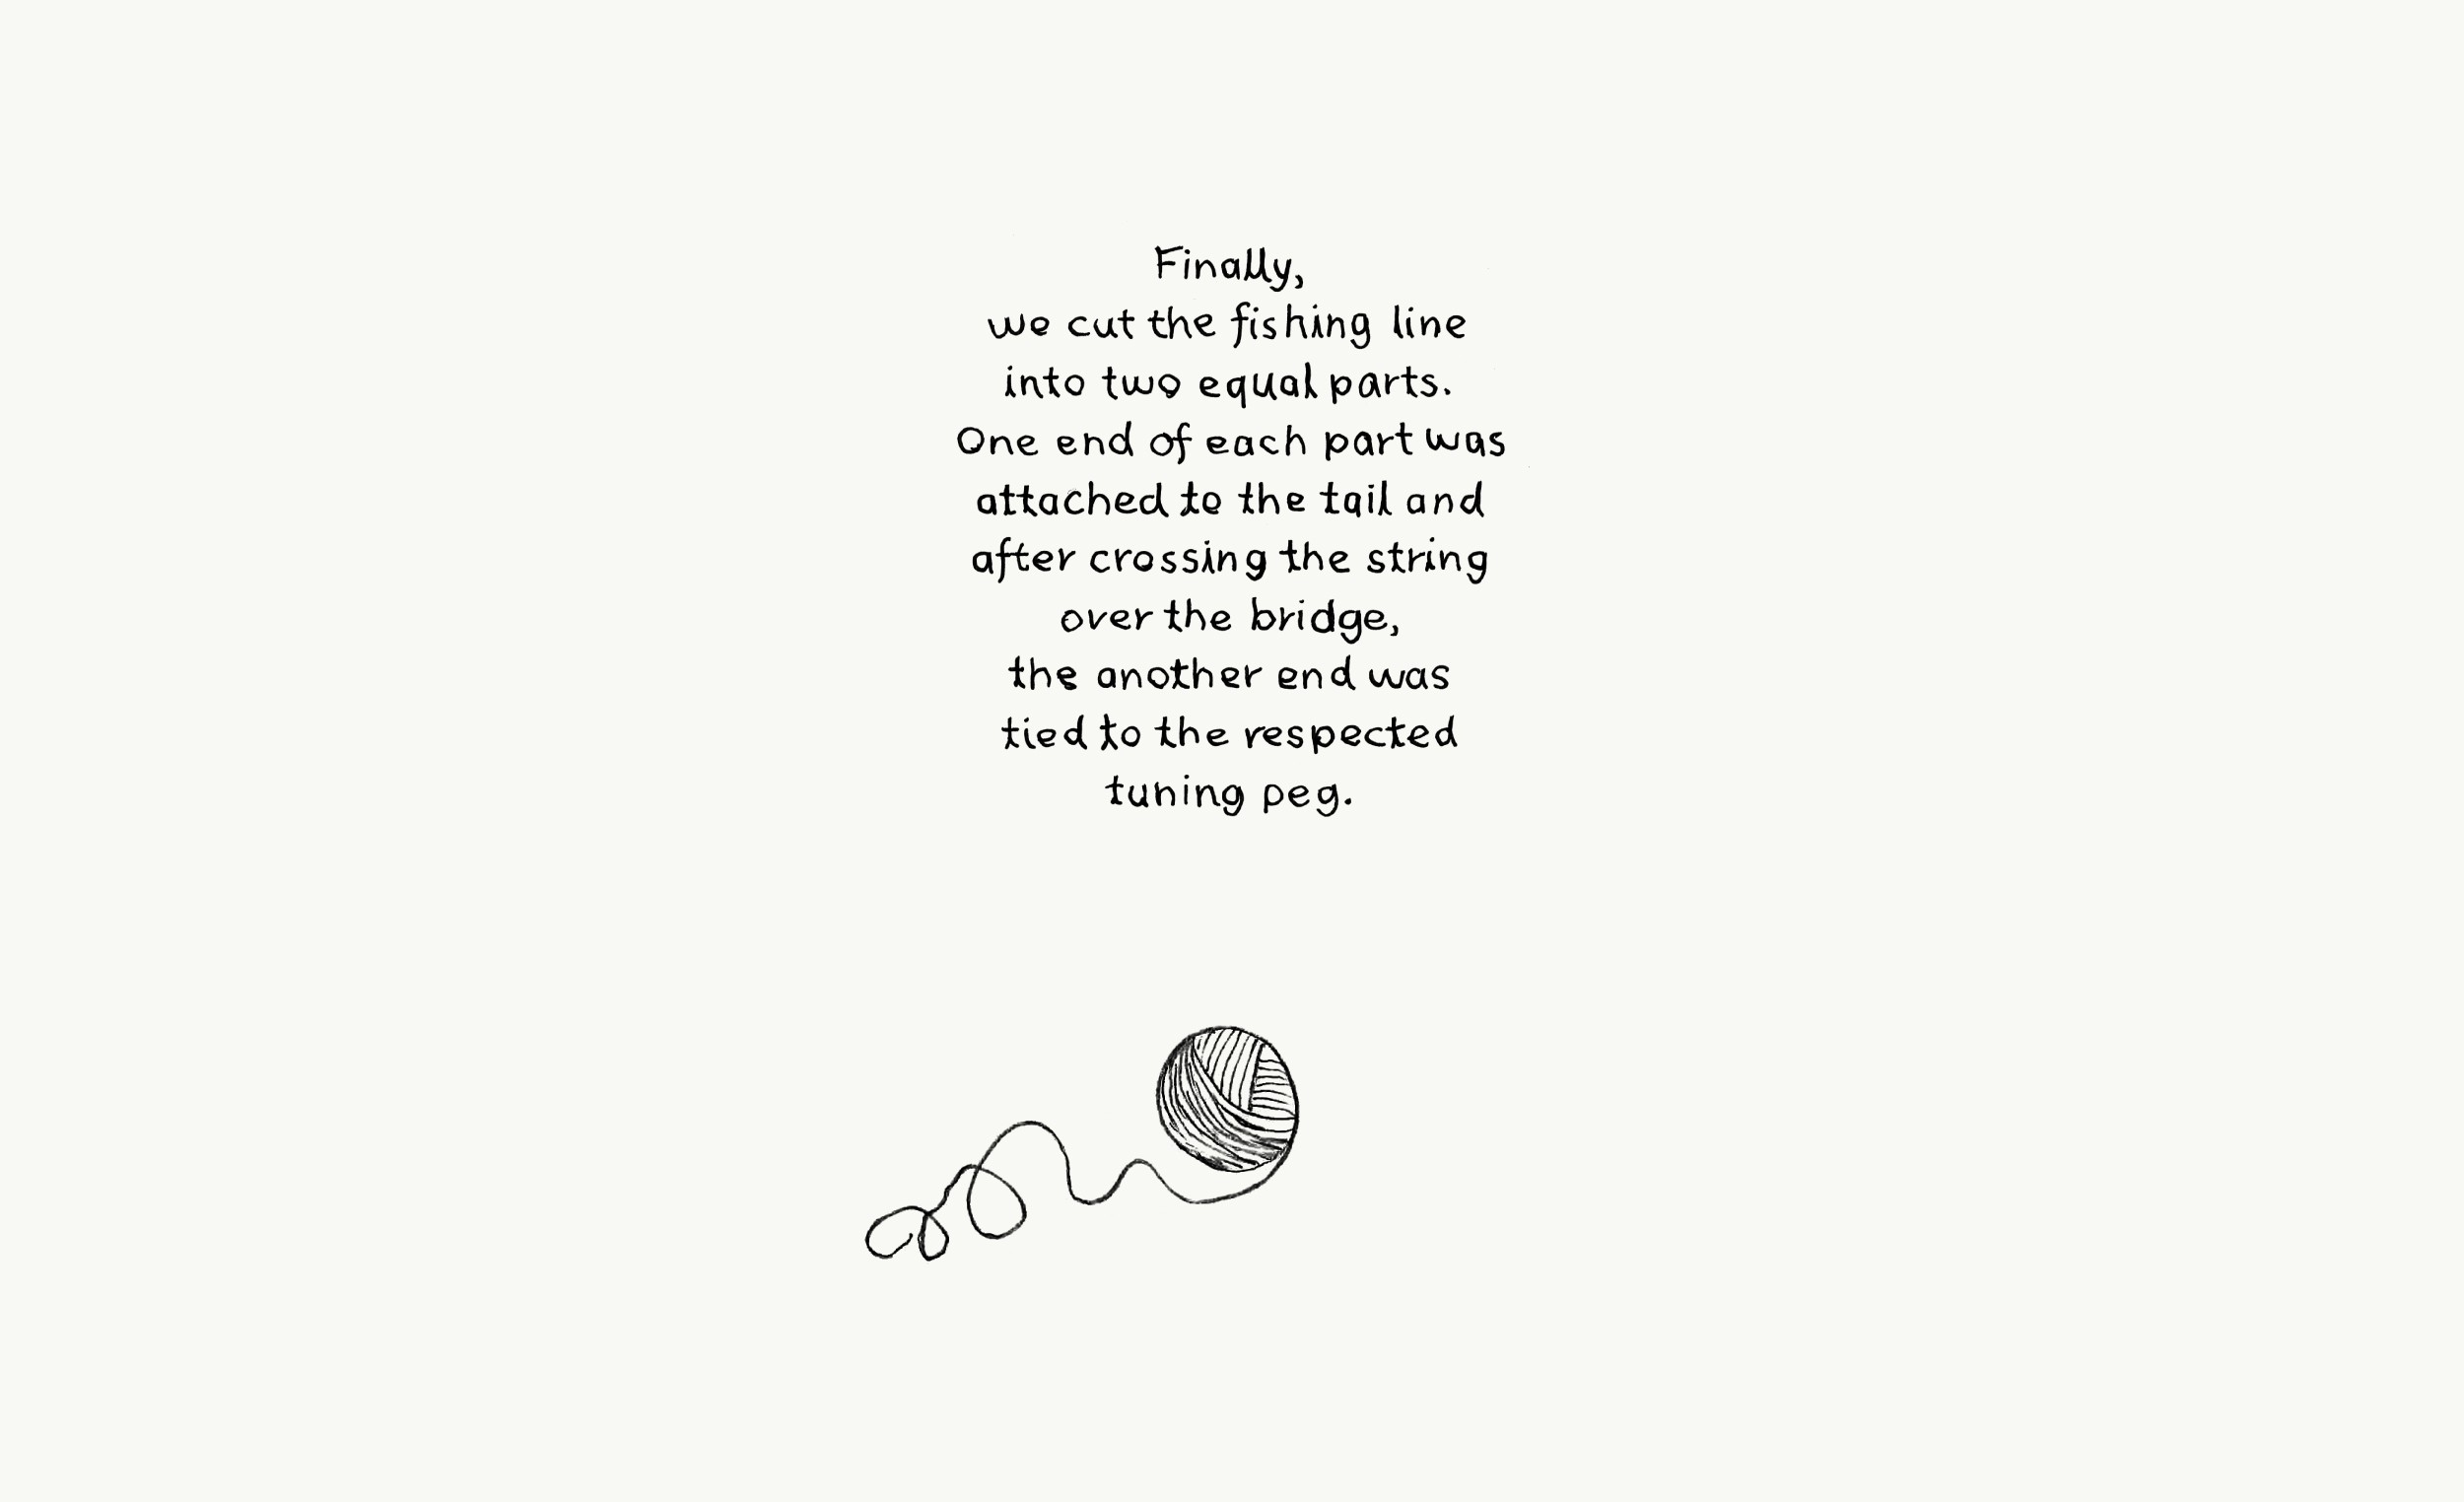 Finally,
we cut the fishing line
into two equal parts.
One end of each part was
attached to the tail and
after crossing the string
over the bridge,
the another end was
tied to the respected
tuning peg.